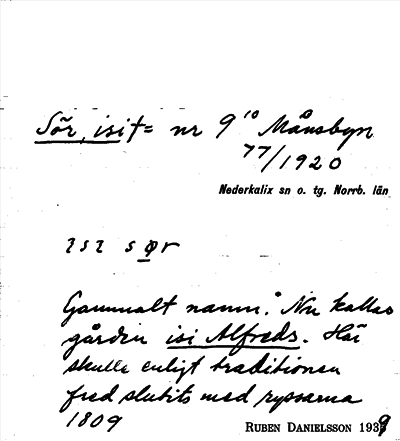 Sör, isi t= nr 9¹⁰ Månsbyn
77/1920
Nederkalix sn o. tg. Norrb. län
ısı sør
Gammalt namn. Nu kallas
gården isi Alfreds. Här
skulle enligt traditionen
fred slutits med ryssarna
1809
RUBEN DANIELSSON 1939